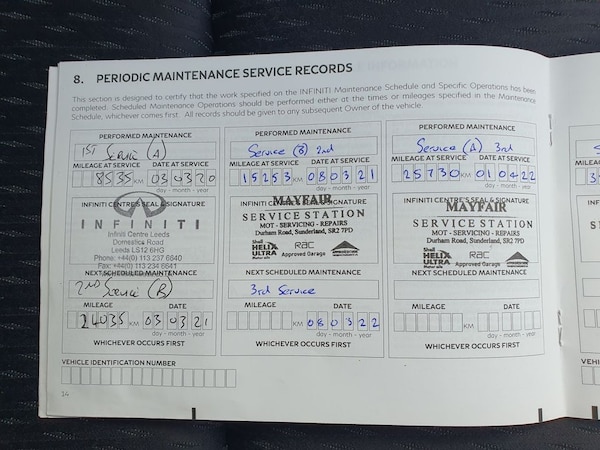 8. PERIODIC MAINTENANCE SERVICE RECORDS
This section is designed to certify that the work specified on the INFINITI Maintenance Schedule and Specific Operations has been
completed. Scheduled Maintenance Operations should be performed either at the times or mileages specified in the Maintenance
Schedule, whichever comes first. All records should be given to any subsequent Owner of the vehicle.
PERFORMED MAINTENANCE
1ST Service (A)
MILEAGE AT SERVICE DATE AT SERVICE
8535 KM 030320
day - month - year
INFINITI CENTRE'S SEAL & SIGNATURE
INFINITI
Infiniti Centre Leeds
Domestic Road
Leeds LS12 6HG
Phone: +44(0) 113 237 6640
Fax: +44(0) 113 234 6641
NEXT SCHEDULED MAINTENANCE
2nd Service (B)
MILEAGE DATE
24035 KM 030321
day - month - year
WHICHEVER OCCURS FIRST
PERFORMED MAINTENANCE
Service (B) 2nd
MILEAGE AT SERVICE DATE AT SERVICE
15253 KM 080321
day - month - year
INFINITI CENTRE'S SEAL & SIGNATURE
MAYFAIR
SERVICE STATION
MOT - SERVICING - REPAIRS
Durham Road, Sunderland, SR2 7PD
Shell
HELIX
ULTRA
Motor oils
RAC
Approved Garage
NEXT SCHEDULED MAINTENANCE
3rd Service
MILEAGE DATE
KM 080322
day - month - year
WHICHEVER OCCURS FIRST
PERFORMED MAINTENANCE
Service (A) 3rd
MILEAGE AT SERVICE DATE AT SERVICE
25730 KM 010422
day - month - year
INFINITI CENTRE'S SEAL & SIGNATURE
MAYFAIR
SERVICE STATION
MOT - SERVICING - REPAIRS
Durham Road, Sunderland, SR2 7PD
Shell
HELIX
ULTRA
Motor oils
RAC
Approved Garage
NEXT SCHEDULED MAINTENANCE
MILEAGE DATE
KM
day - month - year
WHICHEVER OCCURS FIRST
VEHICLE IDENTIFICATION NUMBER
14